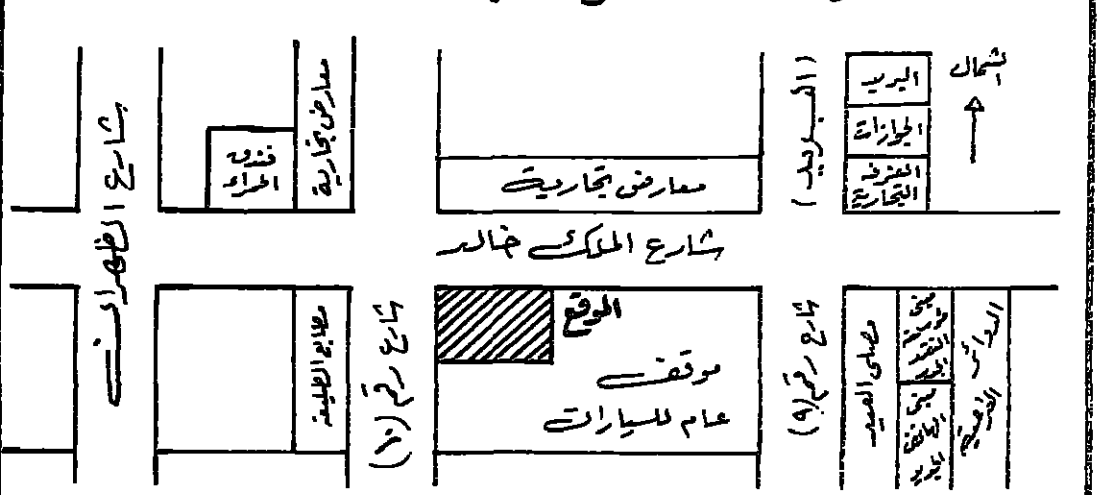 الشمال
البريد
الجوازات
الغرفة
التجارية
(البريد)
معارض تجارية
معارض تجارية
فندق
الحمراء
شارع الظهران
شارع الملك خالد
الموقع
موقف
عام للسيارات
شارع رقم (١٠)
مطابع المطلية
شارع رقم (٩)
مصلى العيد
مبنى
مؤسسة
النقد
الجديد
مبنى
الهاتف
الجديد
الدوائر